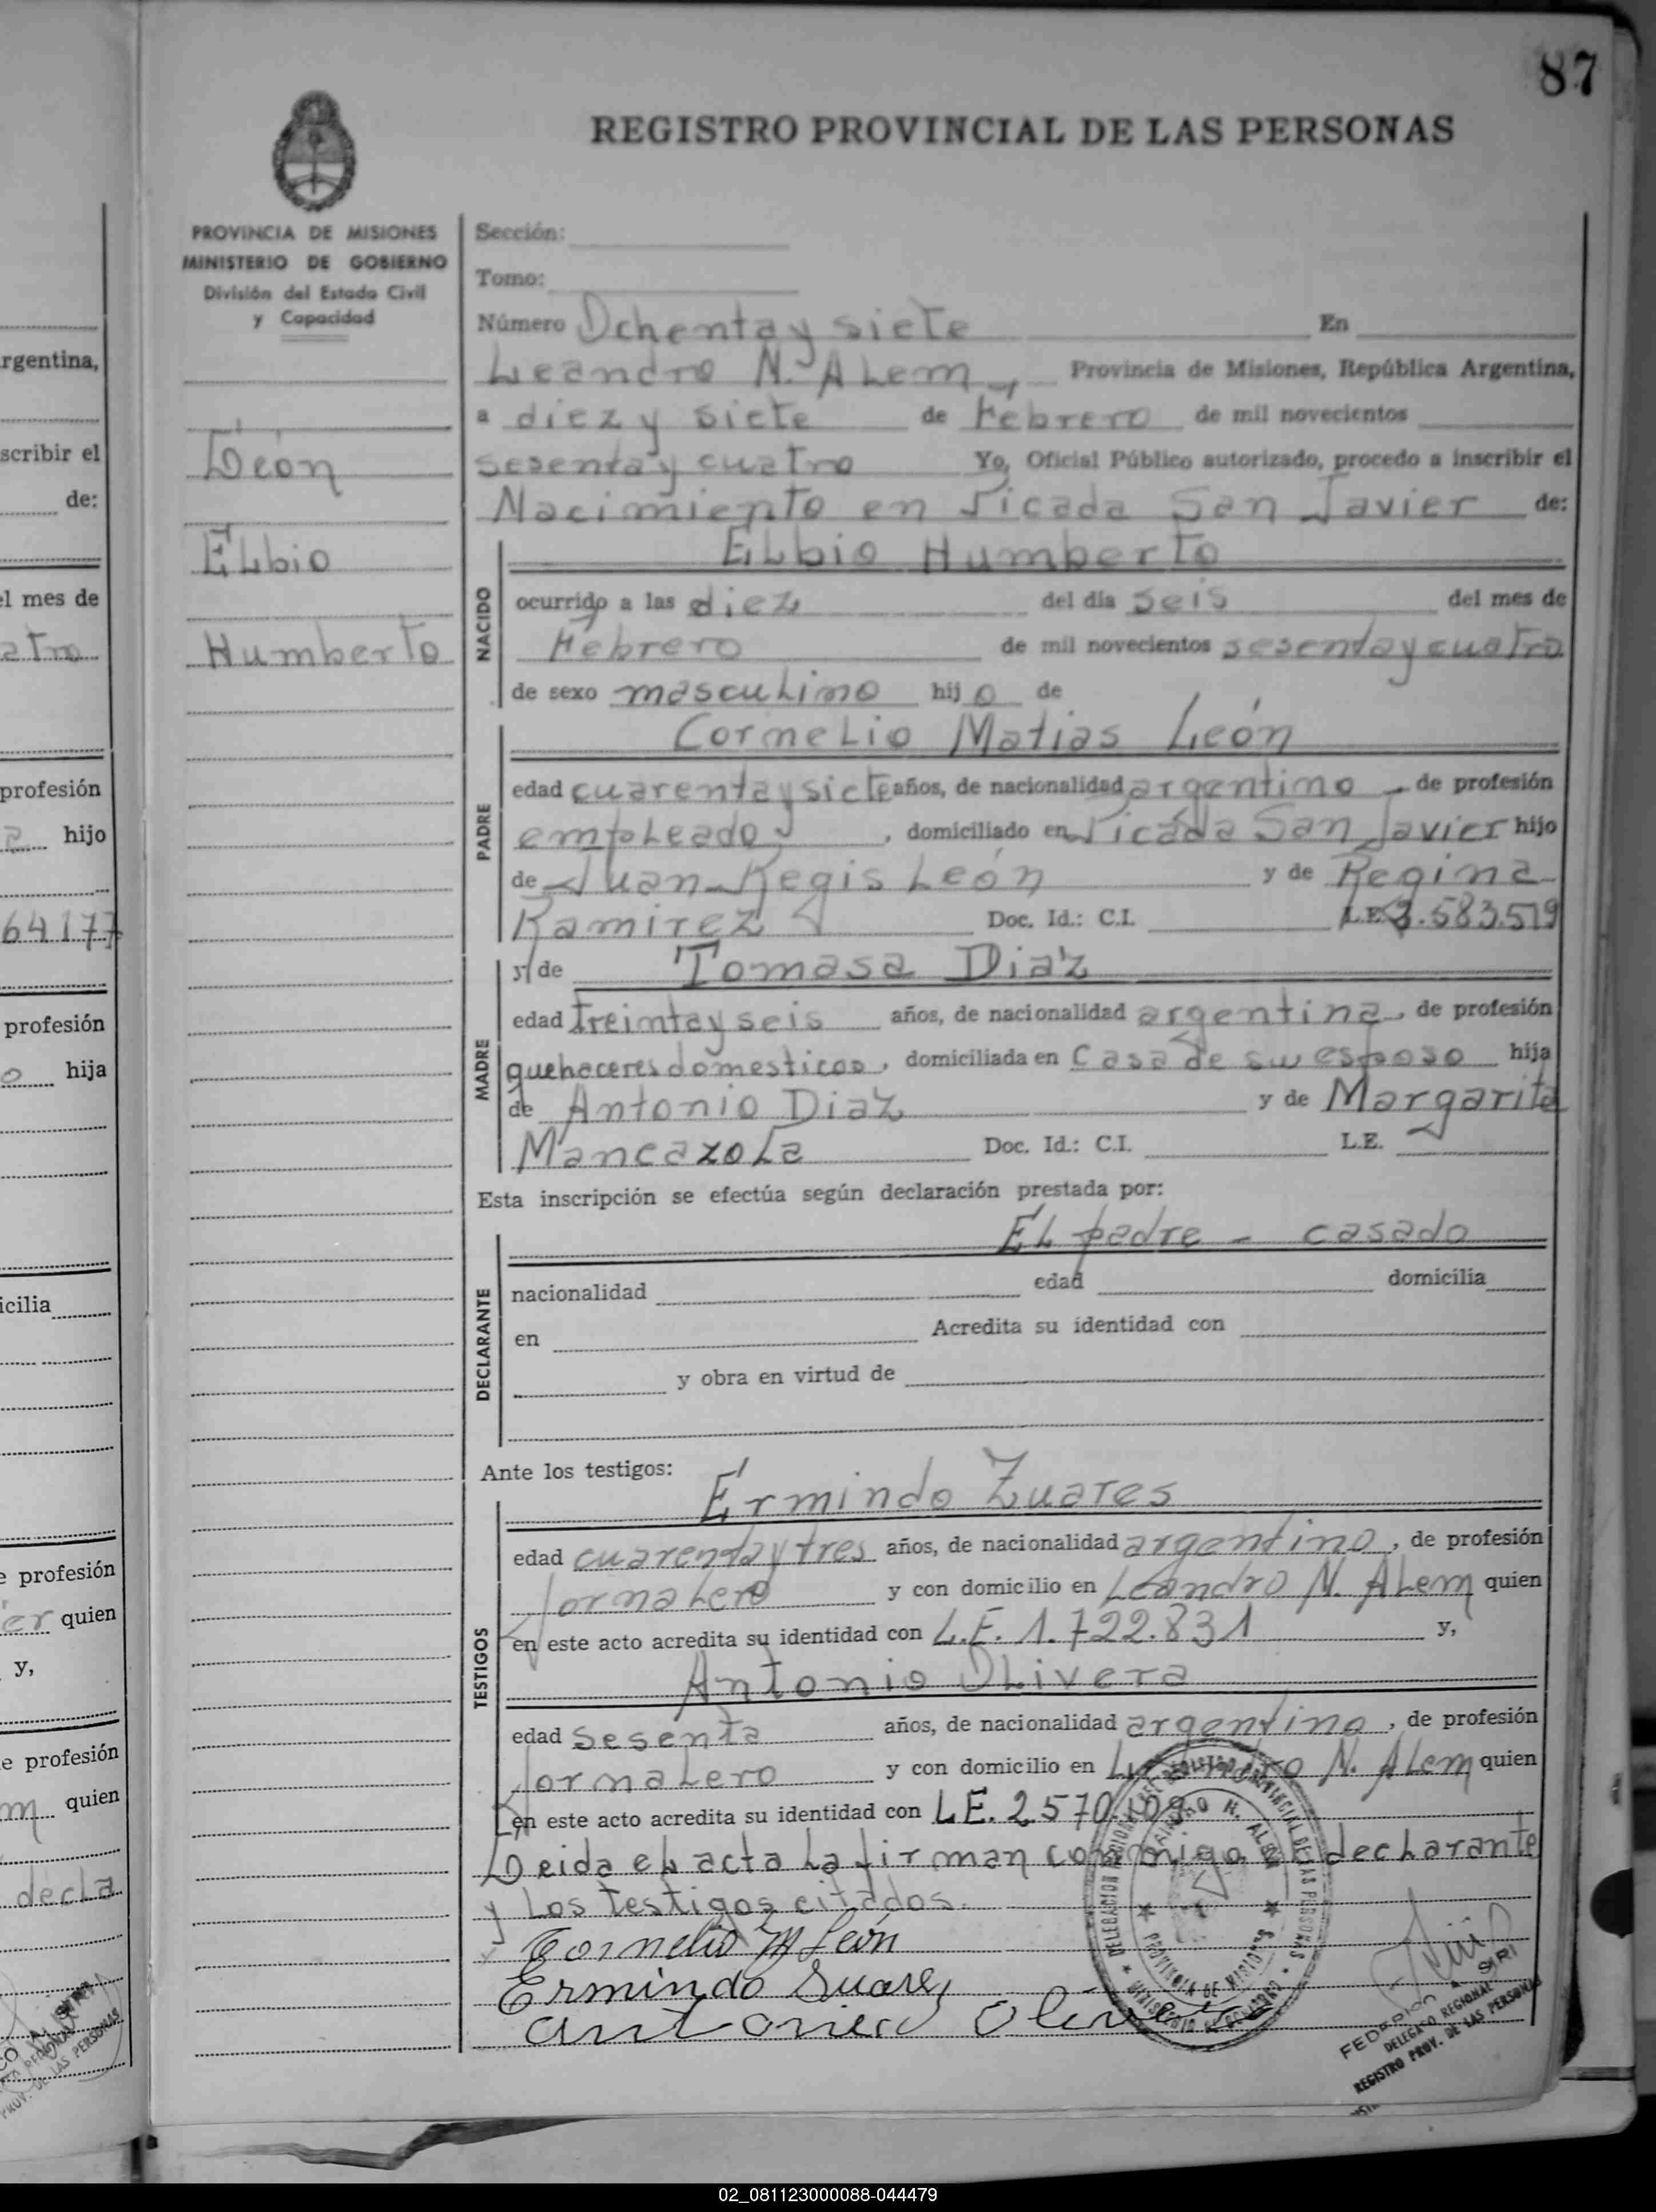 87
REGISTRO PROVINCIAL DE LAS PERSONAS
PROVINCIA DE MISIONES
MINISTERIO DE GOBIERNO
División del Estado Civil
y Capacidad
León
Elbio
Humberto
Sección:
Tomo:
Número Ochenta y siete En
Leandro N. Alem, Provincia de Misiones, República Argentina,
a diez y siete de Febrero de mil novecientos
sesenta y cuatro Yo, Oficial Público autorizado, procedo a inscribir el
Nacimiento en Picada San Javier de:
Elbio Humberto
NACIDO
ocurrido a las diez del día seis del mes de
Febrero de mil novecientos sesenta y cuatro
de sexo masculino hijo de
Cornelio Matias León
PADRE
edad cuarenta y siete años, de nacionalidad argentino - de profesión
empleado, domiciliado en Picada San Javier hijo
de Juan Regis León y de Regina
Ramirez Doc. Id.: C.I. L.E. 3.583.519
y de Tomasa Diaz
MADRE
edad treinta y seis años, de nacionalidad argentina, de profesión
quehaceres domesticos, domiciliada en casa de su esposo hija
de Antonio Diaz y de Margarita
Mancazola Doc. Id.: C.I. L.E.
Esta inscripción se efectúa según declaración prestada por:
El padre - casado
DECLARANTE
nacionalidad edad domicilia
en Acredita su identidad con
y obra en virtud de
Ante los testigos:
Ermindo Zuares
TESTIGOS
edad cuarenta y tres años, de nacionalidad argentino, de profesión
Jornalero y con domicilio en Leandro N. Alem quien
en este acto acredita su identidad con L.E. 1.722.831 y,
Antonio Olivera
edad sesenta años, de nacionalidad argentino, de profesión
Jornalero y con domicilio en Leandro N. Alem quien
en este acto acredita su identidad con L.E. 2570.109
Leida el acta la firman conmigo el declarante
y los testigos citados.
Cornelio M León
Ermindo Suarez
Antonio Olivera
DELEGADO REGIONAL
REGISTRO PROV. DE LAS PERSONAS
rgentina,
scribir el
de:
el mes de
atro
profesión
hijo
64177
profesión
o hija
icilia
e profesión
er quien
y,
e profesión
m quien
decla
02_081123000088-044479